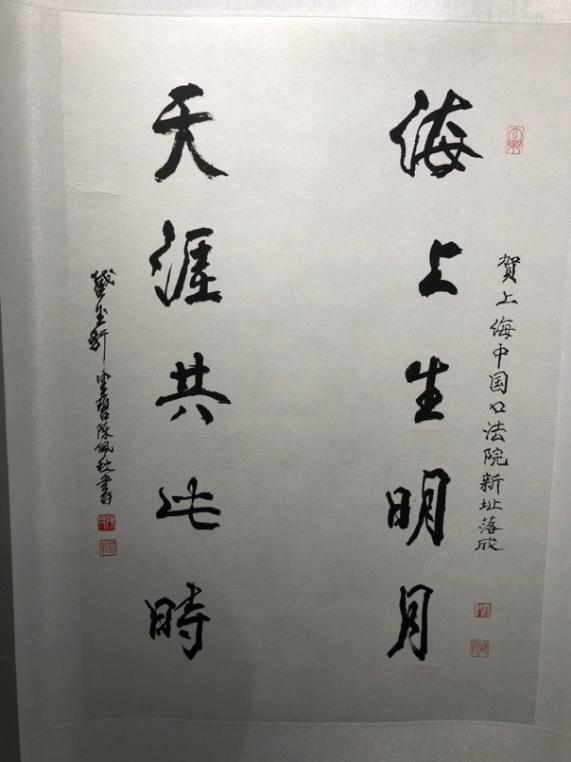 賀上海中国书法院新址落成
海上生明月
天涯共此時
截玉軒 健碧陳佩秋書